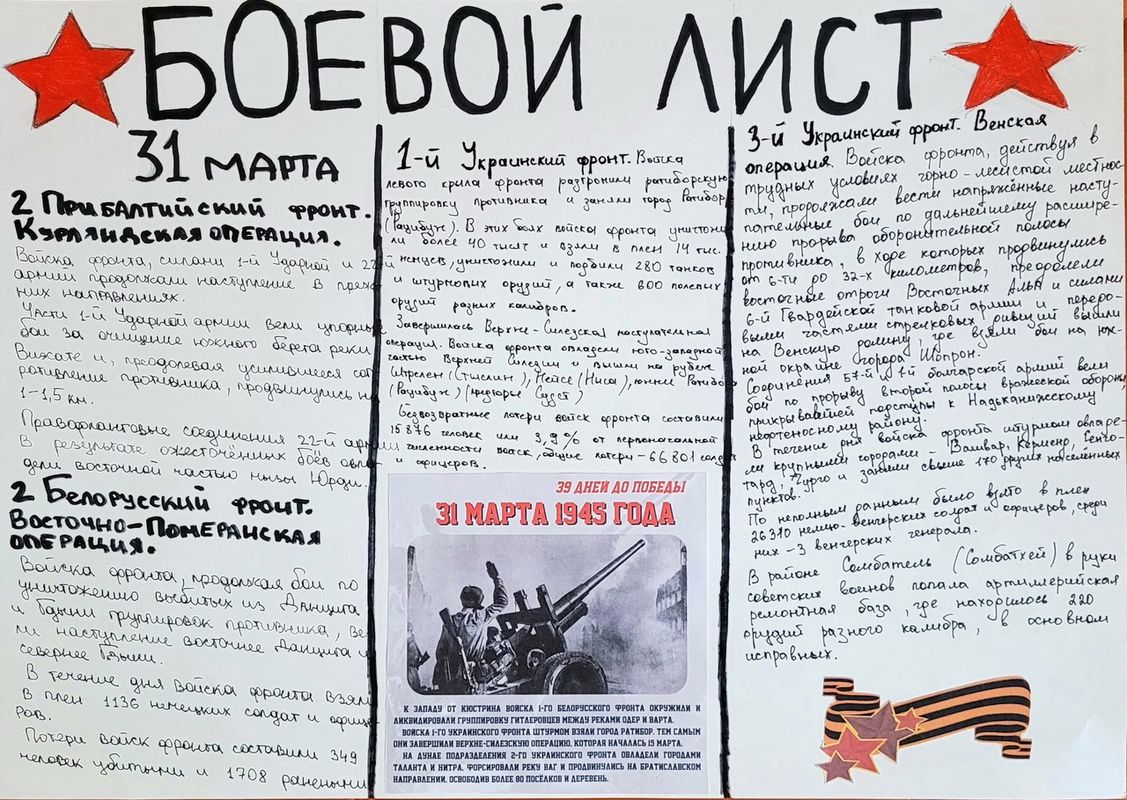 БОЕВОЙ ЛИСТ
31 МАРТА
2 Прибалтийский фронт.
Курляндская операция.
Войска фронта, силами 1-й Ударной и 22-й
армий продолжали наступление в преж-
них направлениях.
Части 1-й Ударной армии вели упорные
бои за очищение южного берега реки
Виесате и, преодолевая усилившееся соп-
ротивление противника, продвинулись на
1-1,5 км.
Правофланговые соединения 22-й армии
в результате ожесточённых боёв овла-
дели восточной частью мызы Юрди.
2 Белорусский фронт.
Восточно-Померанская
операция.
Войска фронта, продолжая бои по
уничтожению выбитых из Данцига
и Гдыни группировок противника, ве-
ли наступление восточнее Данцига и
севернее Гдыни.
В течение дня войска фронта взяли
в плен 1136 немецких солдат и офице-
ров.
Потери войск фронта составили 349
человек убитыми и 1708 ранеными
1-й Украинский фронт. Войска
левого крыла фронта разгромили ратиборскую
группировку противника и заняли город Ратибор
(Рацибуж). В этих боях войска фронта уничтожи-
ли более 40 тысяч и взяли в плен 14 тыс.
немцев, уничтожили и подбили 280 танков
и штурмовых орудий, а также 600 полевых
орудий разных калибров.
Завершилась Верхне-Силезская наступательная
операция. Войска фронта овладели юго-западной
частью Верхней Силезии и вышли на рубеж
Штрелен (Стшелин), Нейсе (Ниса), южнее Ратибора
(Рацибуж) (предгорье Судет)
Безвозвратные потери войск фронта составили
15876 человек или 3,9% от первоначальной
численности войск, общие потери - 66801 солдат
и офицеров.
39 ДНЕЙ ДО ПОБЕДЫ
31 МАРТА 1945 ГОДА
К ЗАПАДУ ОТ КЮСТРИНА ВОЙСКА 1-ГО БЕЛОРУССКОГО ФРОНТА ОКРУЖИЛИ И
ЛИКВИДИРОВАЛИ ГРУППИРОВКУ ГИТЛЕРОВЦЕВ МЕЖДУ РЕКАМИ ОДЕР И ВАРТА.
ВОЙСКА 1-ГО УКРАИНСКОГО ФРОНТА ШТУРМОМ ВЗЯЛИ ГОРОД РАТИБОР. ТЕМ САМЫМ
ОНИ ЗАВЕРШИЛИ ВЕРХНЕ-СИЛЕЗСКУЮ ОПЕРАЦИЮ, КОТОРАЯ НАЧАЛАСЬ 15 МАРТА.
НА ДУНАЕ ПОДРАЗДЕЛЕНИЯ 2-ГО УКРАИНСКОГО ФРОНТА ОВЛАДЕЛИ ГОРОДАМИ
ГАЛАНТА И НИТРА, ФОРСИРОВАЛИ РЕКУ ВАГ И ПРОДВИНУЛИСЬ НА БРАТИСЛАВСКОМ
НАПРАВЛЕНИИ, ОСВОБОДИВ БОЛЕЕ 80 ПОСЁЛКОВ И ДЕРЕВЕНЬ.
3-й Украинский фронт. Венская
операция. Войска фронта, действуя в
трудных условиях горно-лесистой местнос-
ти, продолжали вести напряжённые насту-
пательные бои по дальнейшему расшире-
нию прорыва оборонительной полосы
противника, в ходе которых продвинулись
от 6-ти до 32-х километров, преодолели
восточные отроги Восточных Альп и силами
6-й Гвардейской танковой армии и передо-
выми частями стрелковых дивизий вышли
на Венскую долину, где взяли бои на юж-
ной окраине города Шопрон.
Соединения 57-й и 1-й болгарской армий вели
бои по прорыву второй полосы вражеской обороны,
прикрывавшей подступы к Надьканижскому
нефтеносному району.
В течение дня войска фронта штурмом овладе-
ли крупными городами - Вашвар, Керменд, Сенго-
тард, Чурго и заняли свыше 170 других населённых
пунктов.
По неполным данным было взято в плен
26310 немецко-венгерских солдат и офицеров, среди
них - 3 венгерских генерала.
В районе Сомбатель (Сомбатхей) в руки
советских воинов попала артиллерийская
ремонтная база, где находилось 220
орудий разного калибра, в основном
исправных.